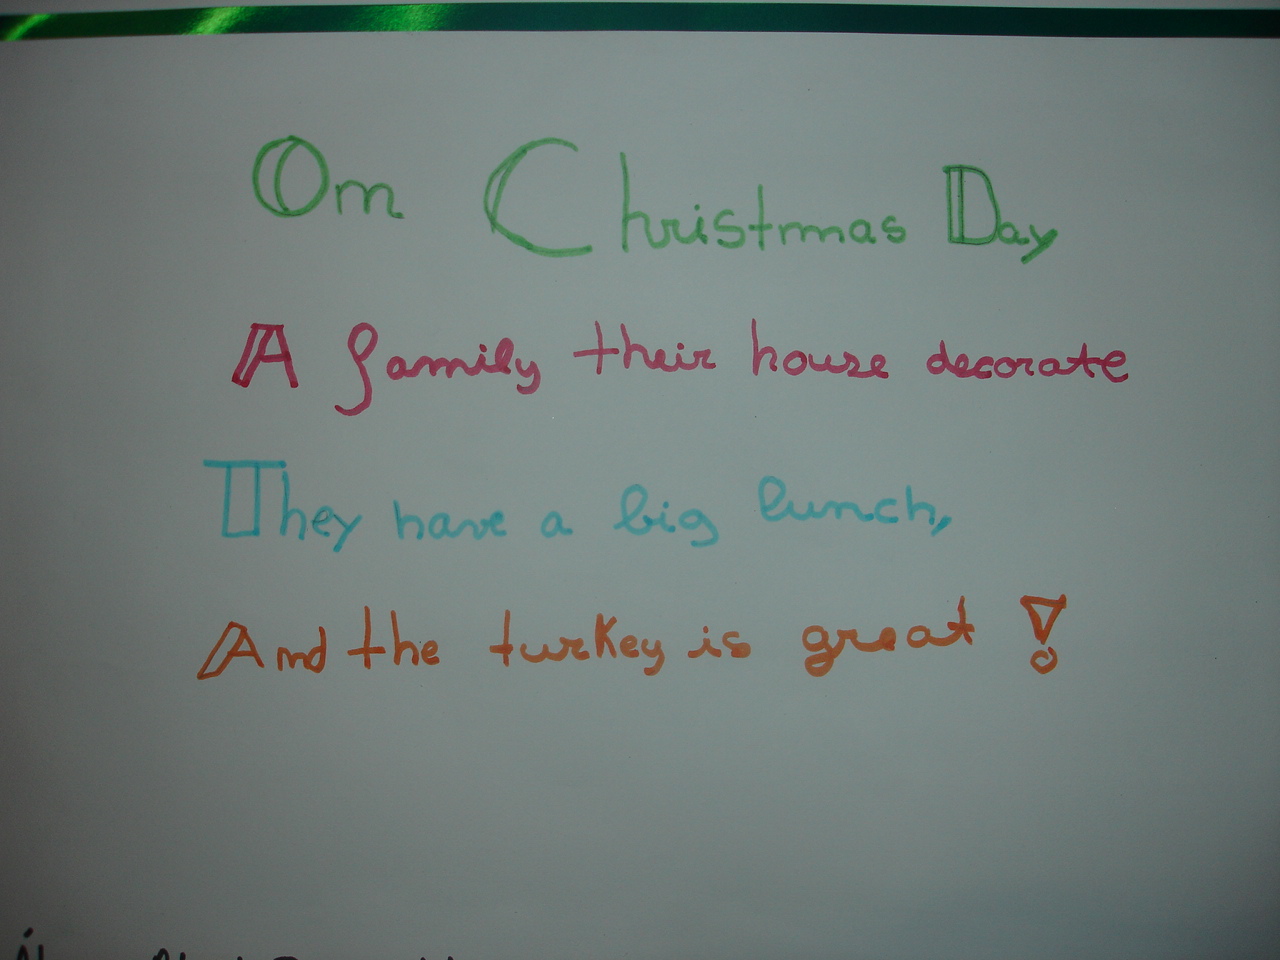 On Christmas Day
A family their house decorate
They have a big lunch,
And the turkey is great!